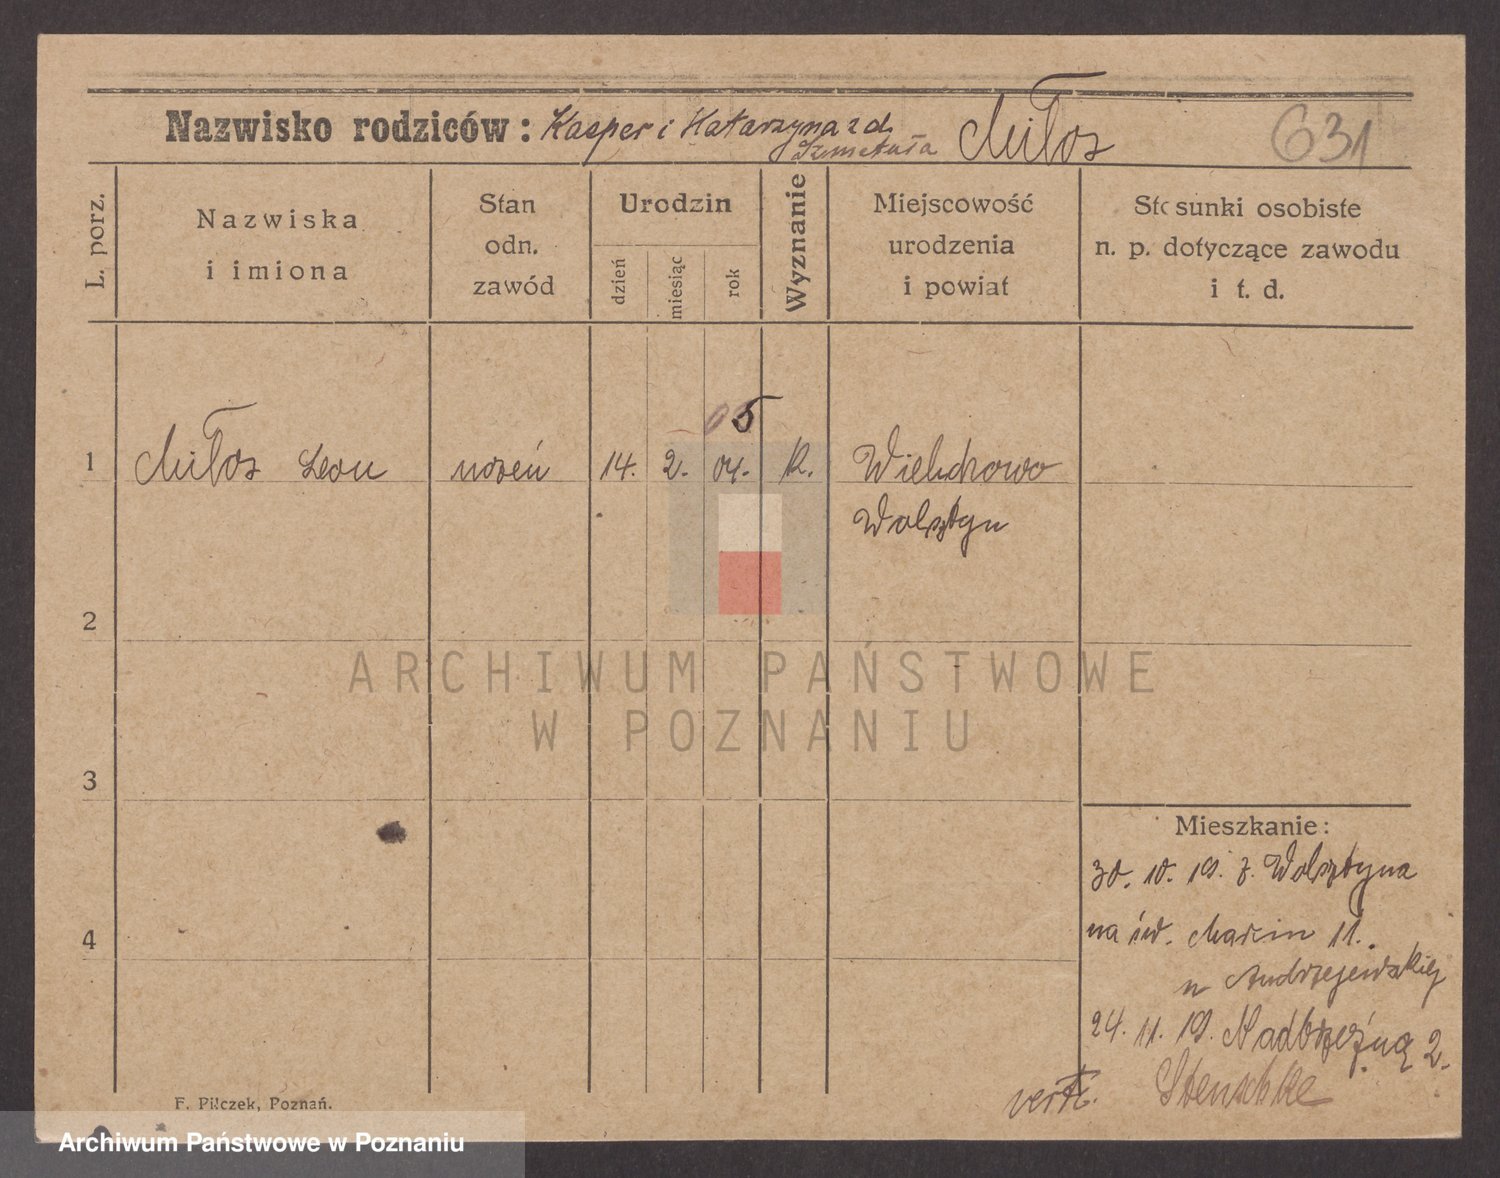 Nazwisko rodziców: Kasper i Katarzyna z d. Miłos 631
Szmetuła
L. porz.
Nazwiska
i imiona
Stan
odn.
zawód
Urodzin
dzień
miesiąc
rok
Wyznanie
Miejscowość
urodzenia
i powiat
Stosunki osobiste
n. p. dotyczące zawodu
i t. d.
05
1 Miłos Leon uczeń 14. 2. 04. K. Wielichowo
Wolsztyn
2
ARCHIWUM PAŃSTWOWE
W POZNANIU
3
Mieszkanie:
30. 10. 19. z. Wolsztyna
4
na św. Marcin 11.
u Andrzejewskiej
24. 11. 19. Nadbrzeżną 2.
Stenschke
F. Pilczek, Poznań.
Archiwum Państwowe w Poznaniu